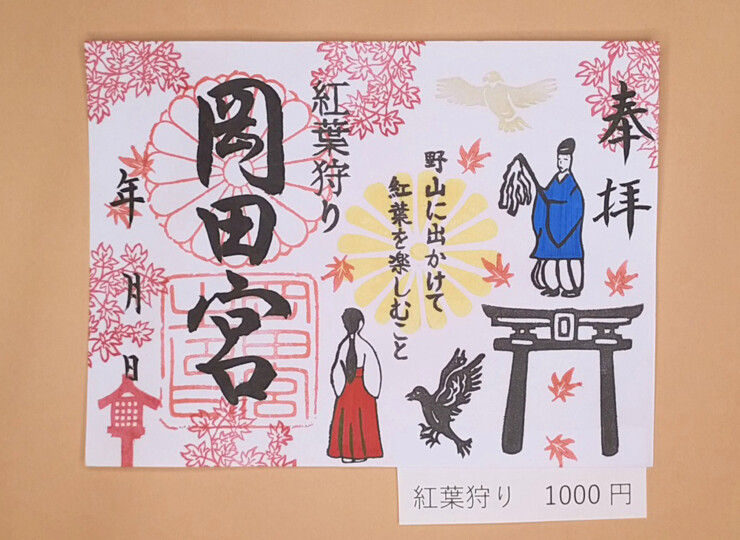 奉拝
野山に出かけて
紅葉を楽しむこと
紅葉狩り
岡田宮
年 月 日
紅葉狩り 1000円